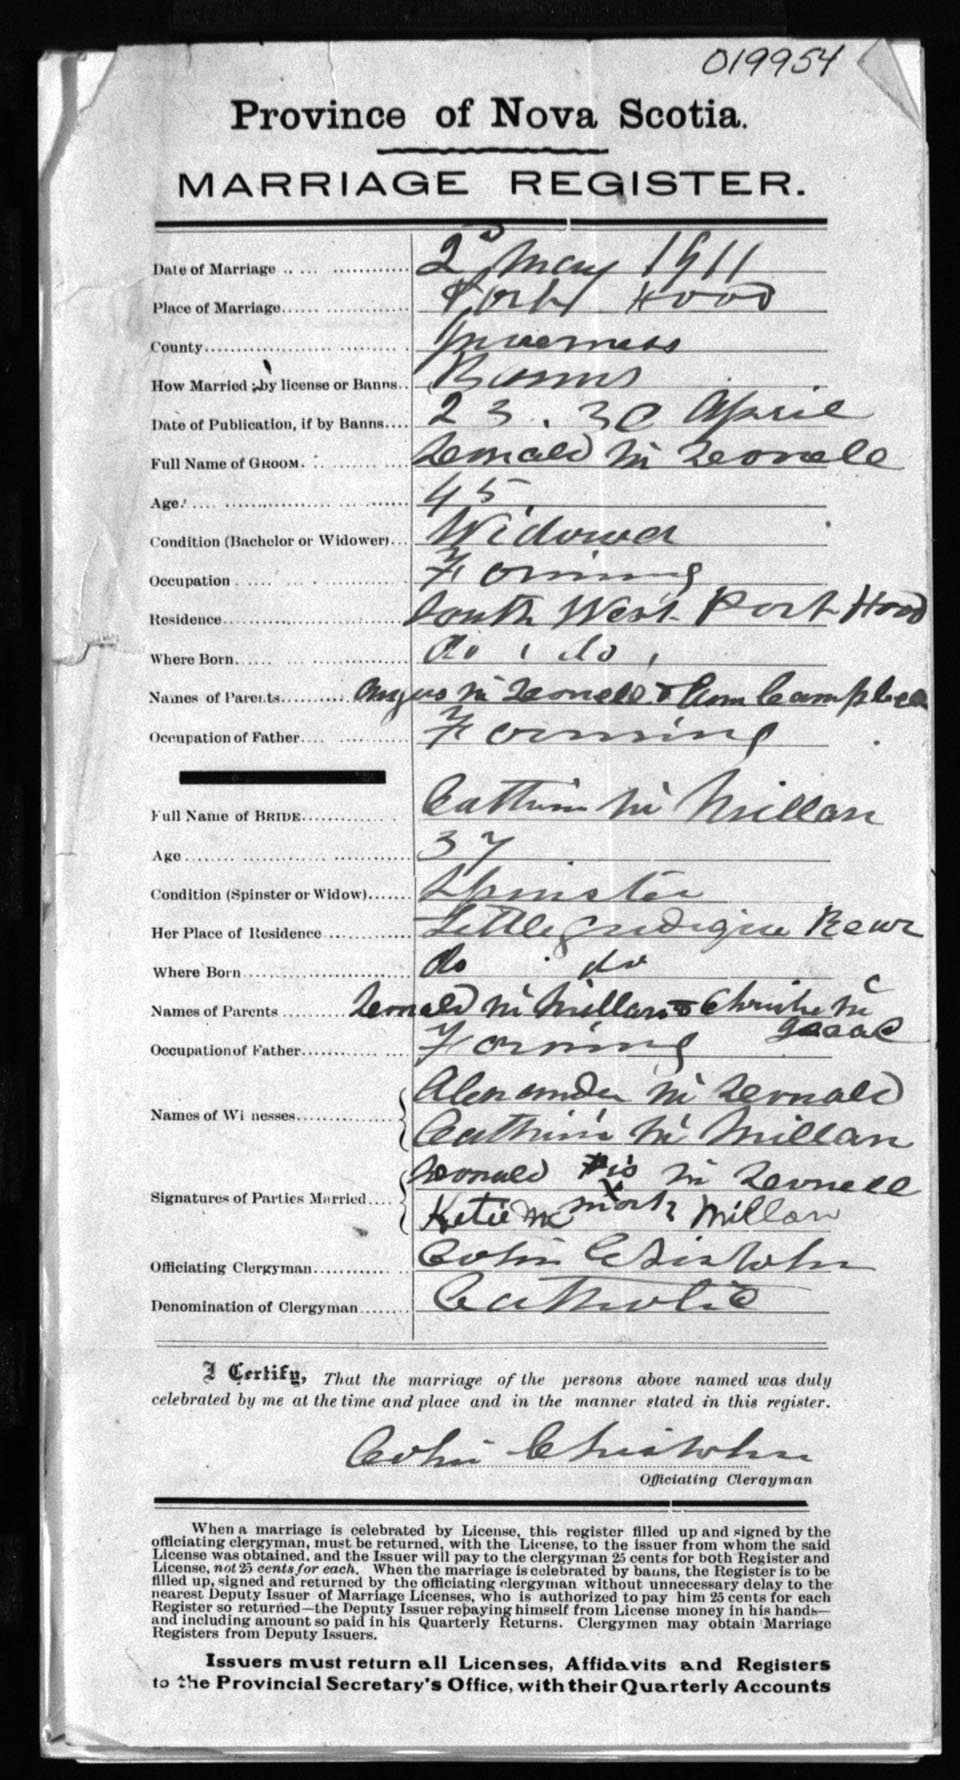 019954
Province of Nova Scotia.
MARRIAGE REGISTER.
Date of Marriage 2d May 1911
Place of Marriage Port Hood
County Inverness
How Married; by license or Banns Banns
Date of Publication, if by Banns 23. 30 April
Full Name of GROOM. Donald Mc Donell
Age 45
Condition (Bachelor or Widower) Widower
Occupation Farming
Residence South West Port Hood
Where Born do, do,
Names of Parents Angus Mc Donell & Ann Campbell
Occupation of Father Farming
Full Name of BRIDE Cathrin Mc Millan
Age 37
Condition (Spinster or Widow) Spinster
Her Place of Residence Little Judique Rear
Where Born do do
Names of Parents Donald Mc Millan & Christie Mc
Isaac
Occupation of Father Farming
Names of Wi nesses Alexander Mc Donald
Cathrin Mc Millan
Signatures of Parties Married Donald his Mc Donell
x
Katie Mc mark Millan
Officiating Clergyman Colin Chisholm
Denomination of Clergyman Catholic
I Certify, That the marriage of the persons above named was duly
celebrated by me at the time and place and in the manner stated in this register.
Colin Chisholm
Officiating Clergyman
When a marriage is celebrated by License, this register filled up and signed by the
officiating clergyman, must be returned, with the License, to the issuer from whom the said
License was obtained, and the Issuer will pay to the clergyman 25 cents for both Register and
License, not 25 cents for each. When the marriage is celebrated by banns, the Register is to be
filled up, signed and returned by the officiating clergyman without unnecessary delay to the
nearest Deputy Issuer of Marriage Licenses, who is authorized to pay him 25 cents for each
Register so returned—the Deputy Issuer repaying himself from License money in his hands—
and including amount so paid in his Quarterly Returns. Clergymen may obtain Marriage
Registers from Deputy Issuers.
Issuers must return all Licenses, Affidavits and Registers
to the Provincial Secretary's Office, with their Quarterly Accounts